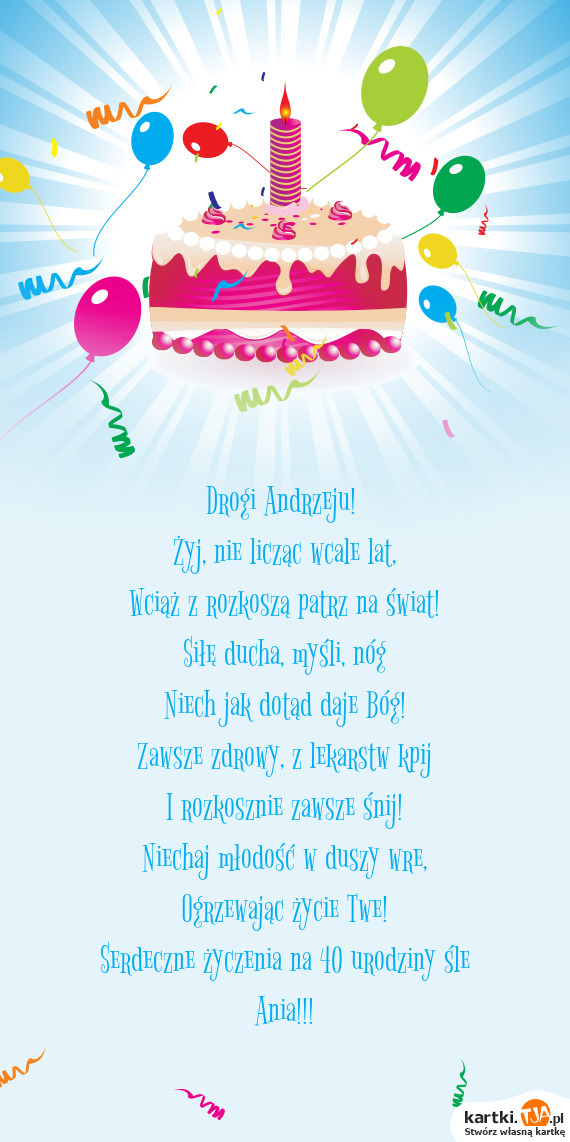 Drogi Andrzeju!
Żyj, nie licząc wcale lat,
Wciąż z rozkoszą patrz na świat!
Siłę ducha, myśli, nóg
Niech jak dotąd daje Bóg!
Zawsze zdrowy, z lekarstw kpij
I rozkosznie zawsze śnij!
Niechaj młodość w duszy wre,
Ogrzewając życie Twe!
Serdeczne życzenia na 40 urodziny śle
Ania!!!
kartki.TJA.pl
Stwórz własną kartkę